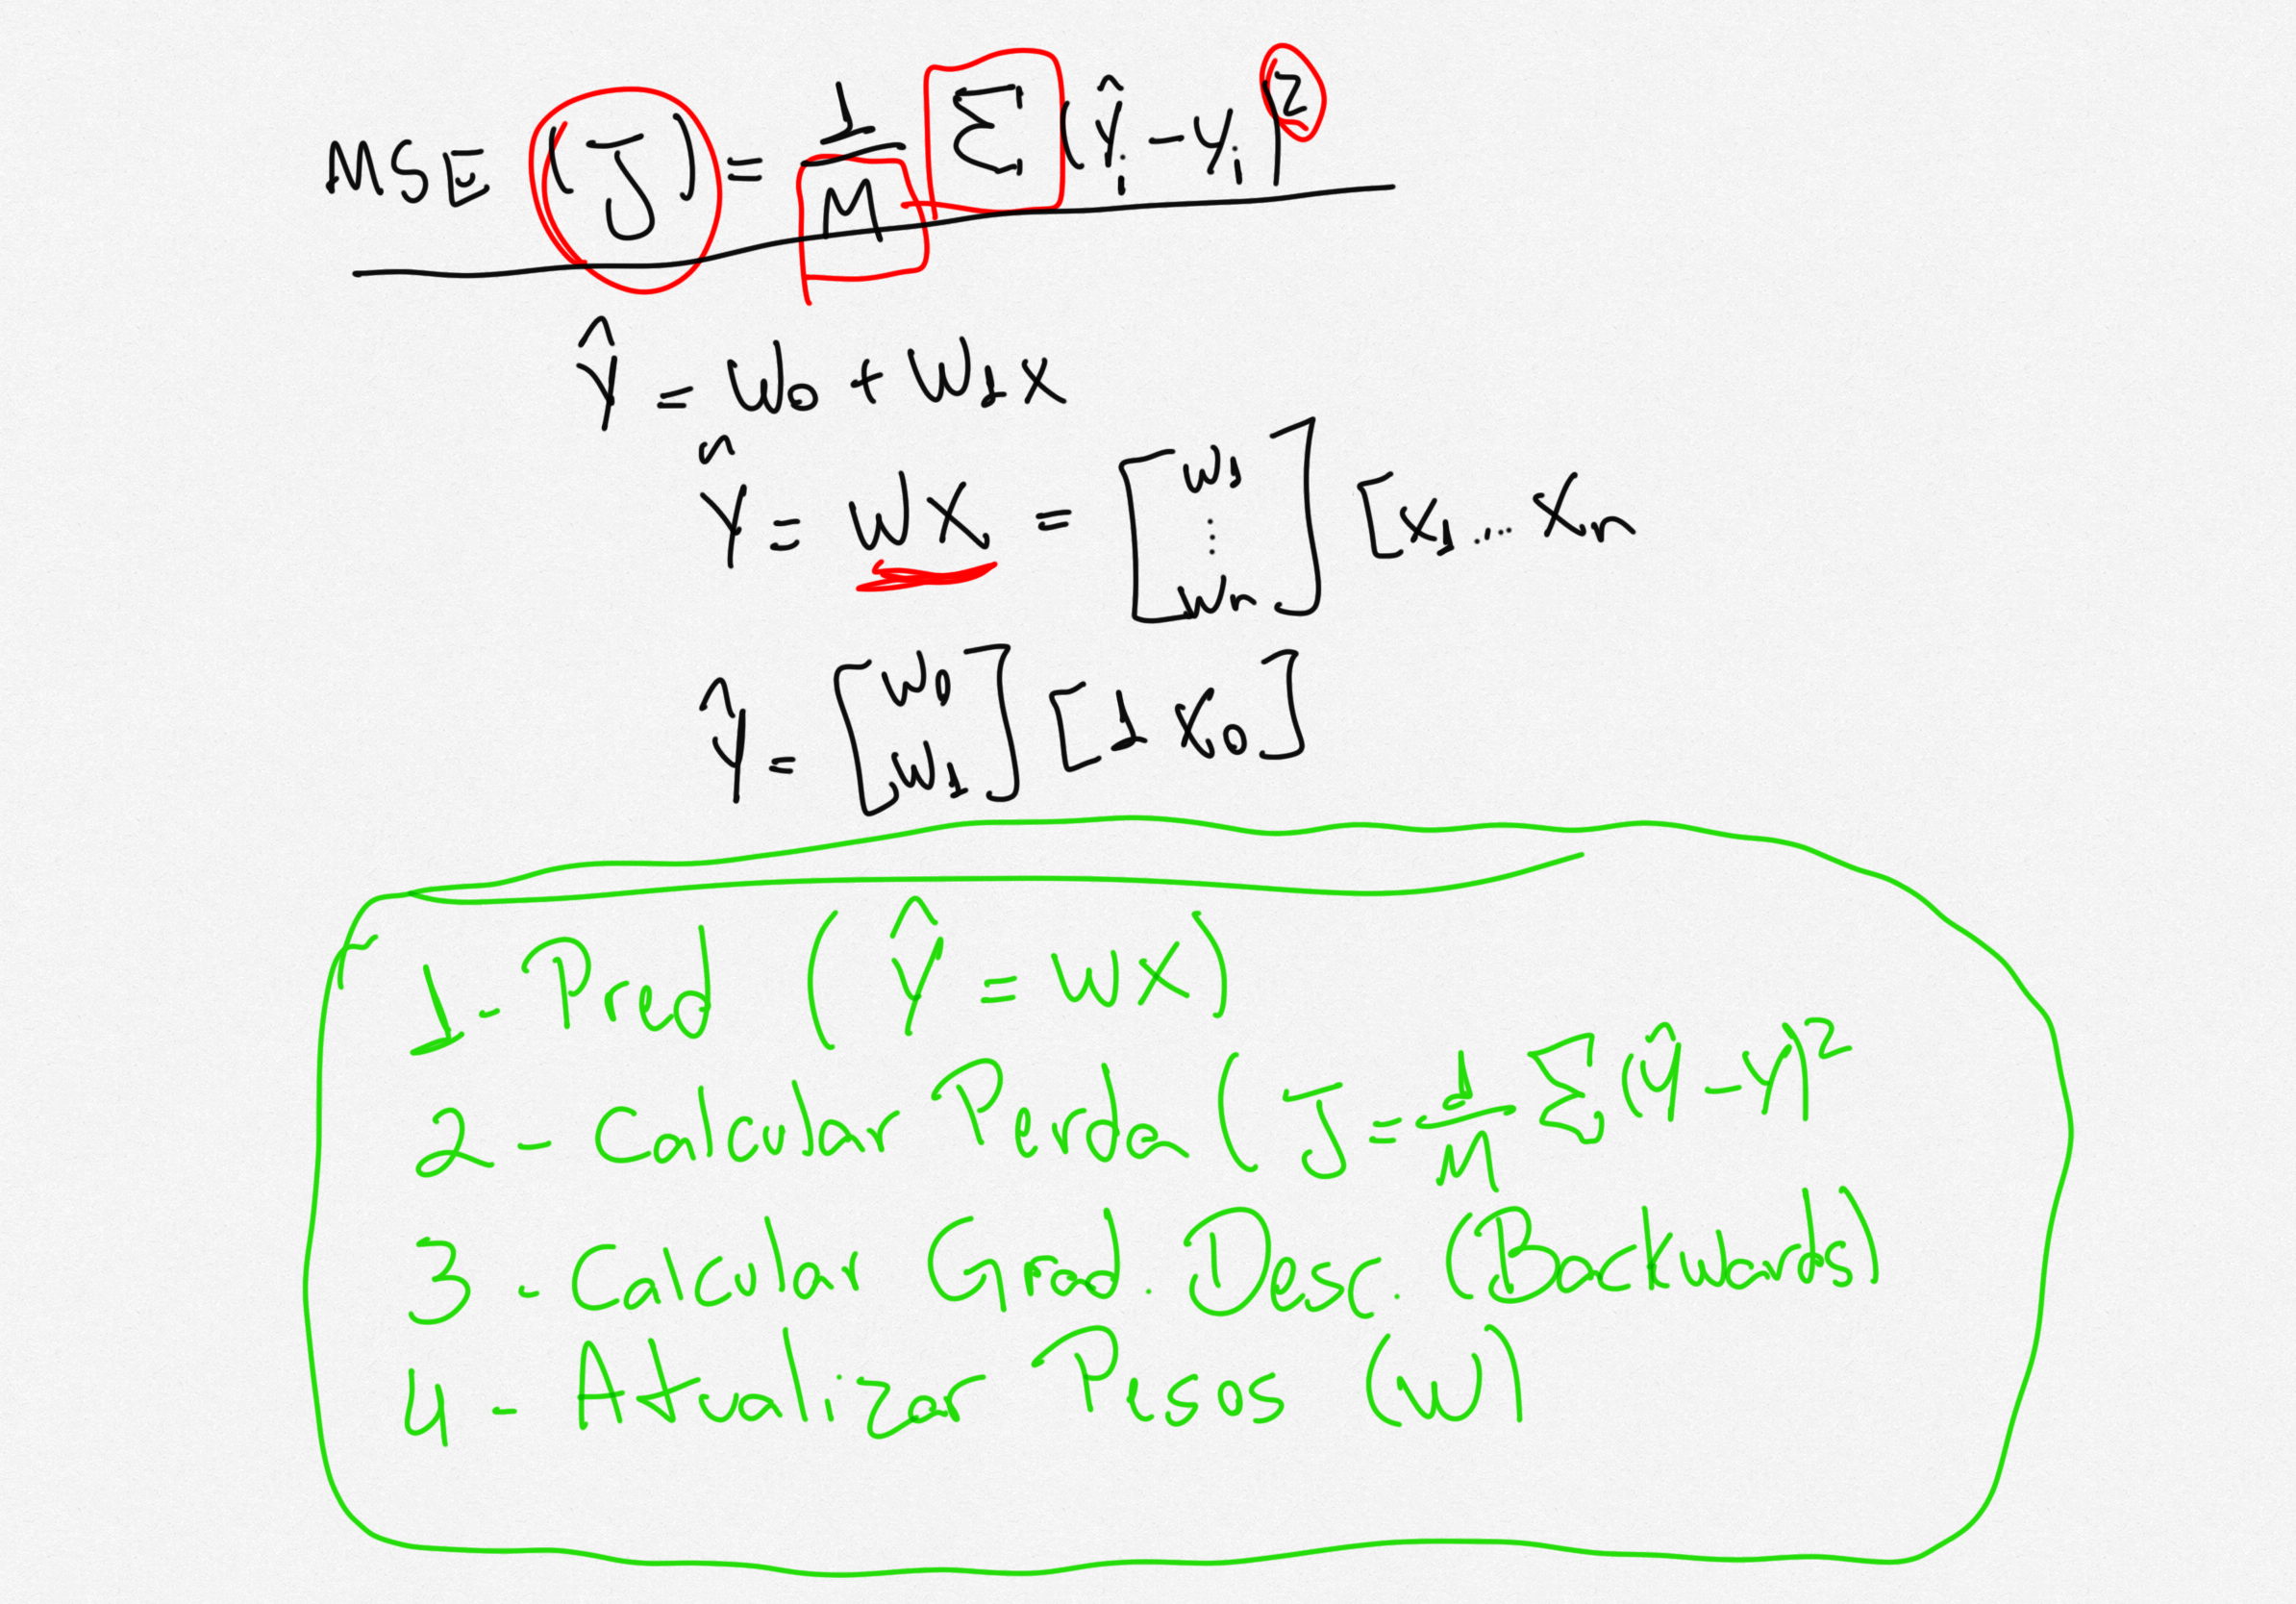 MSE (J) = 1/M Σ (ŷi - yi)²
Ŷ = W0 + W1 x
Ŷ = WX = [W1 ⋮ Wn] [X1 ... Xn
Ŷ = [W0 W1] [1 X0]
1- Pred (Ŷ = WX)
2 - Calcular Perda (J = 1/M Σ (Ŷ - Y)²
3 - Calcular Grad. Desc. (Backwards)
4 - Atualizar Pesos (W)